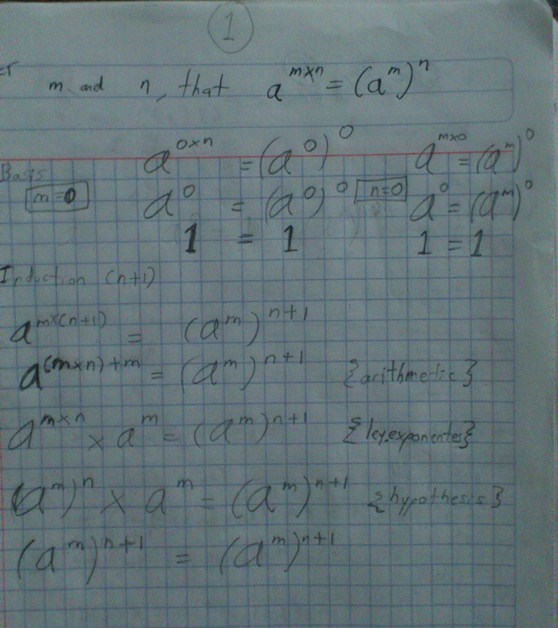 1
m and n, that a^{m×n} = (a^m)^n
a^{0×n} = (a^0)^0 a^{m×0} = (a^m)^0
Basis
m=0 a^0 = (a^0)^0 n=0 a^0 = (a^m)^0
1 = 1 1 = 1
Induction (n+1)
a^{m×(n+1)} = (a^m)^{n+1}
a^{(m×n)+m} = (a^m)^{n+1} {arithmetic}
a^{m×n} × a^m = (a^m)^{n+1} {ley.exponentes}
(a^m)^n × a^m = (a^m)^{n+1} {hypothesis}
(a^m)^{n+1} = (a^m)^{n+1}